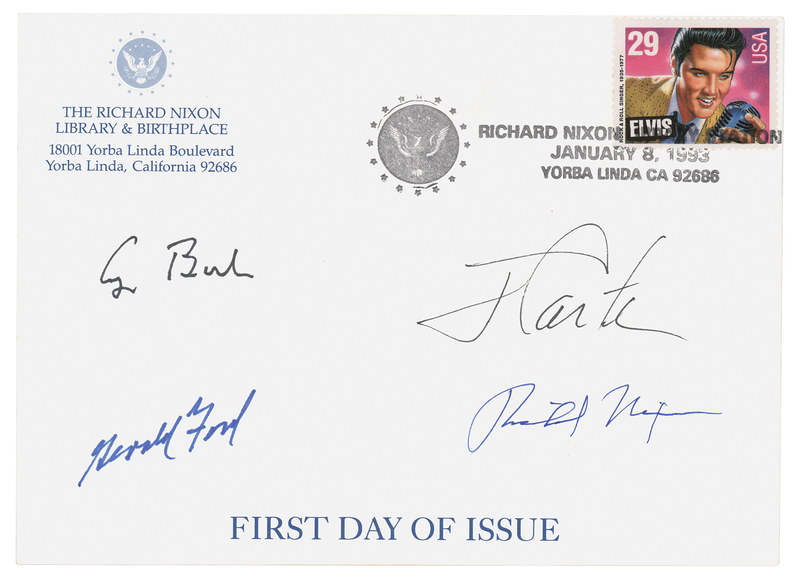 THE RICHARD NIXON
LIBRARY & BIRTHPLACE
18001 Yorba Linda Boulevard
Yorba Linda, California 92686
29
USA
ROCK & ROLL SINGER, 1935-1977
ELVIS
RICHARD NIXON STATION
JANUARY 8, 1993
YORBA LINDA CA 92686
G Bush
J Carter
Gerald Ford
Richard Nixon
FIRST DAY OF ISSUE